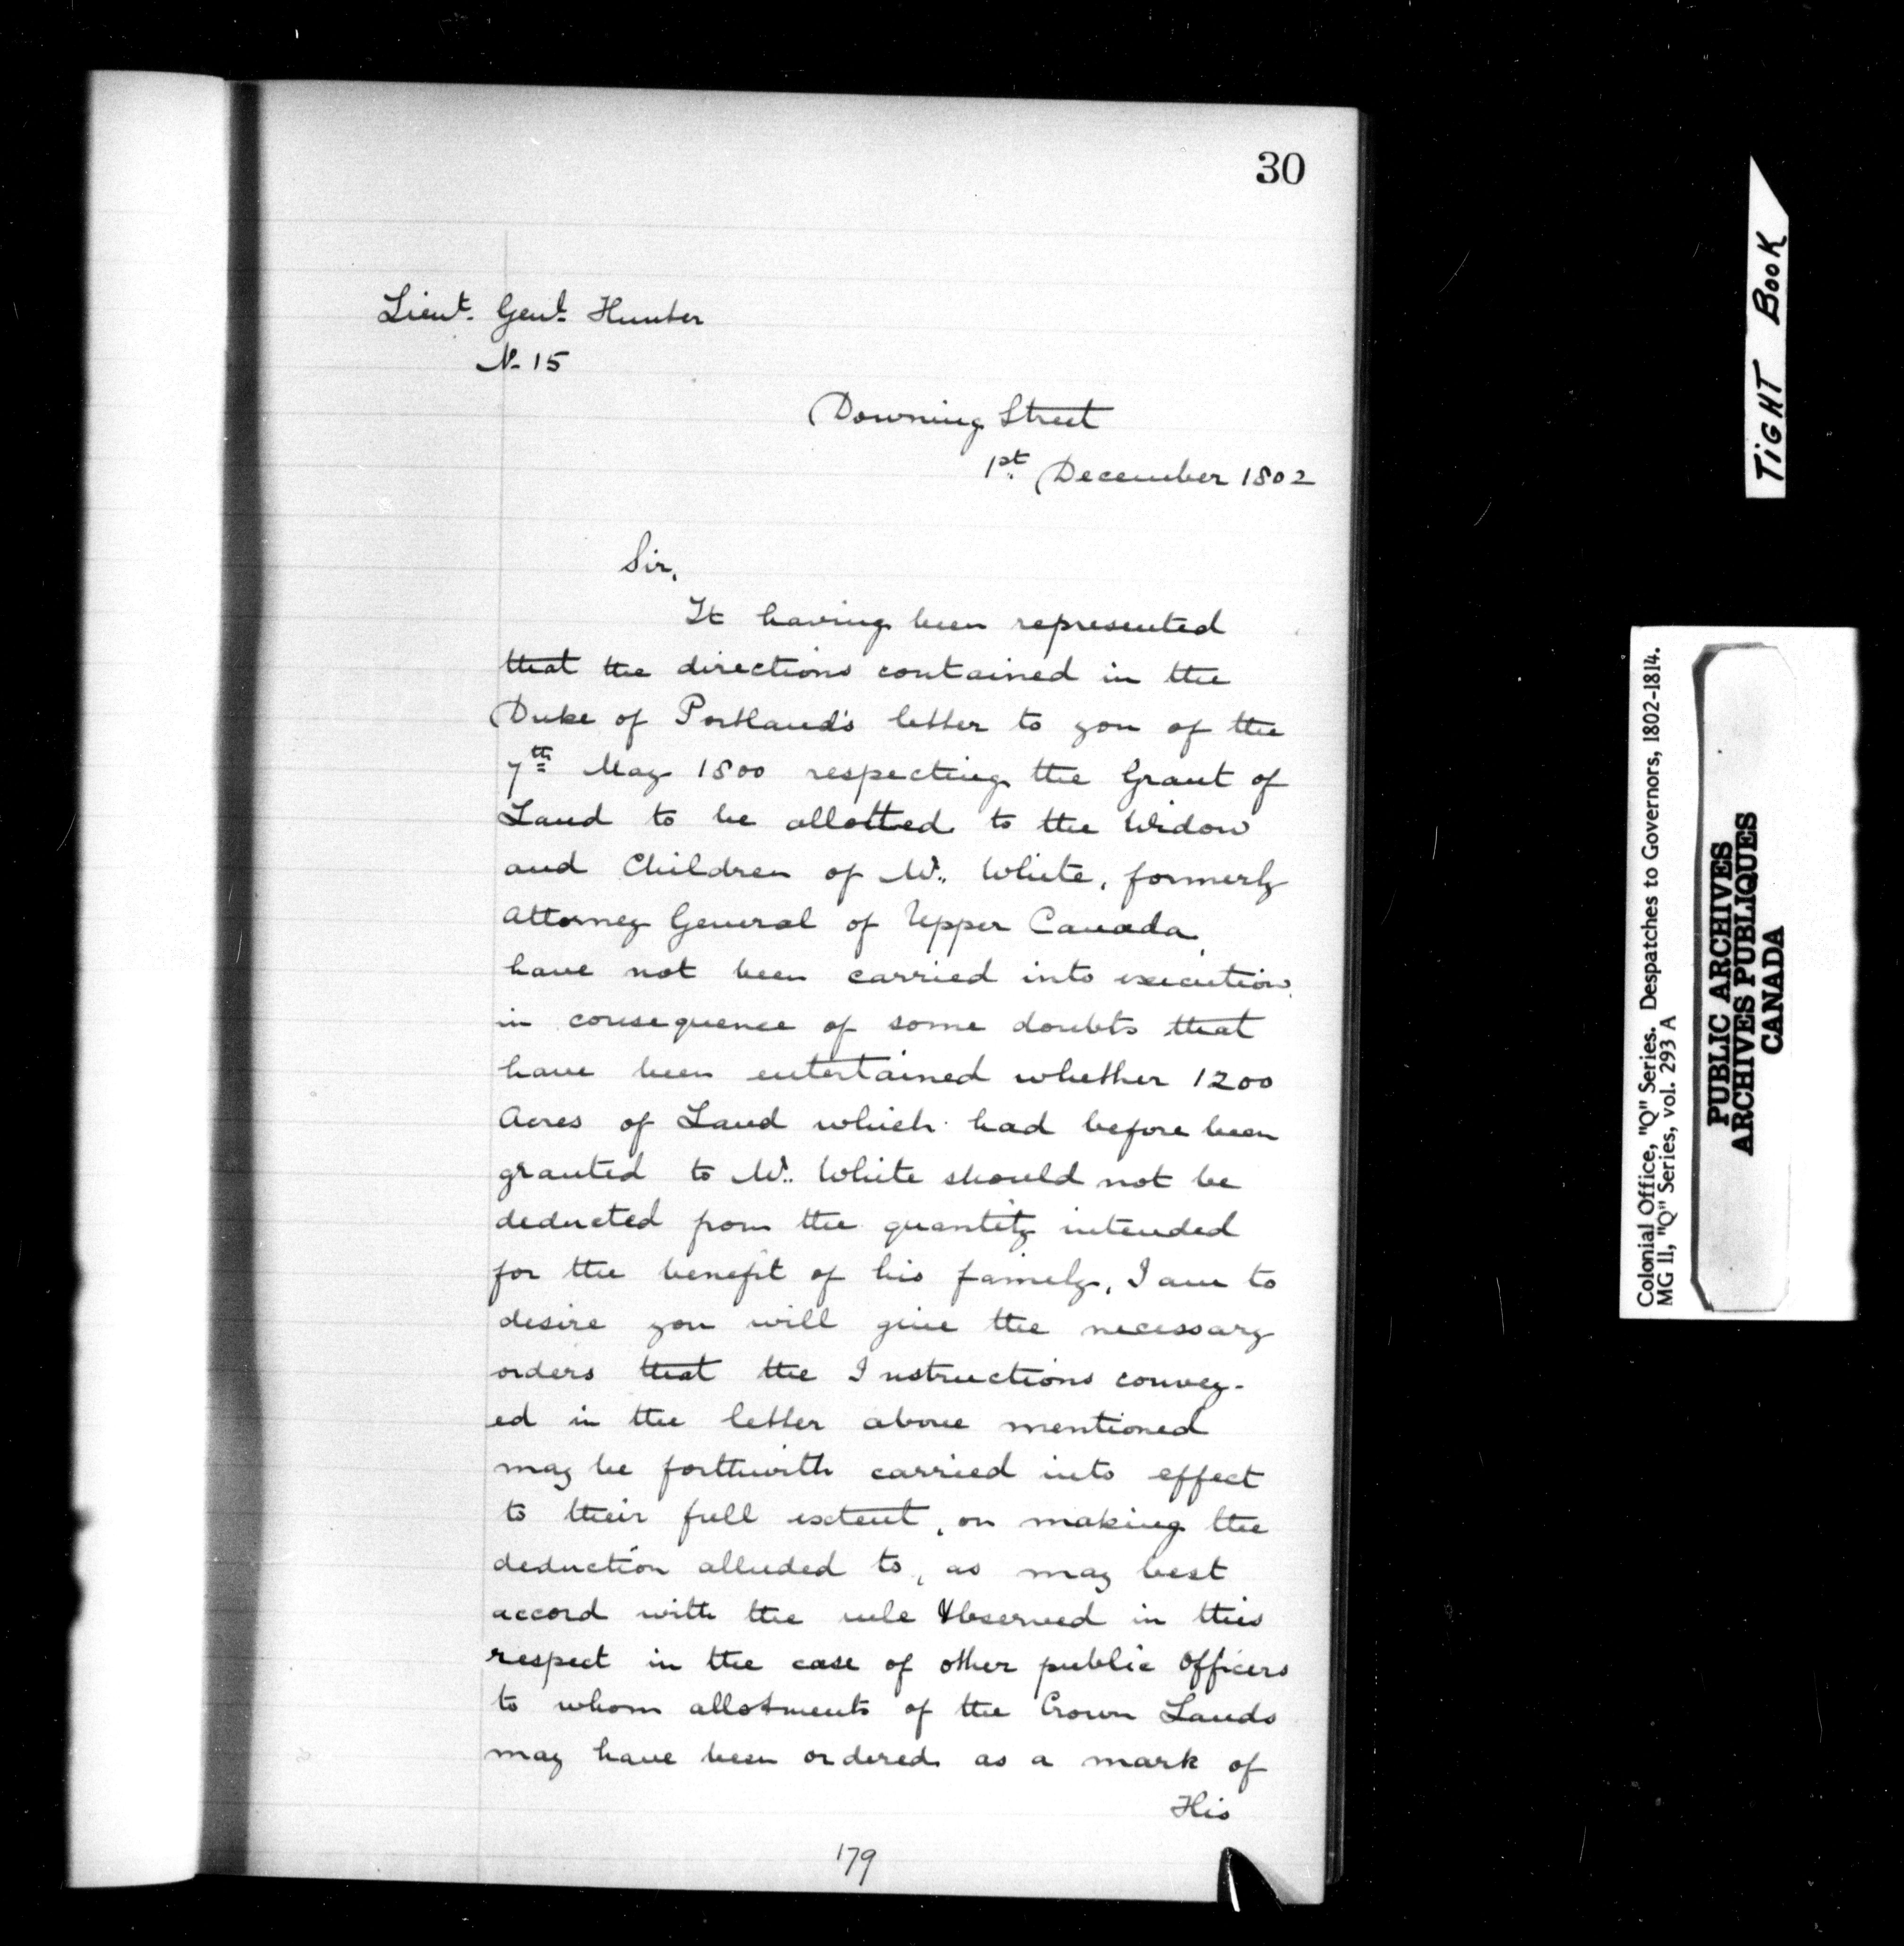 30
Lieut. Genl. Hunter
No. 15
Downing Street
1st. December 1802
Sir,
It having been represented
that the directions contained in the
Duke of Portland's letter to you of the
7th May 1800 respecting the Grant of
Land to be allotted to the Widow
and Children of Mr. White, formerly
Attorney General of Upper Canada,
have not been carried into execution
in consequence of some doubts that
have been entertained whether 1200
Acres of Land which had before been
granted to Mr. White should not be
deducted from the quantity intended
for the benefit of his family, I am to
desire you will give the necessary
orders that the Instructions convey-
ed in the letter above mentioned
may be forthwith carried into effect
to their full extent, on making the
deduction alluded to, as may best
accord with the rule Observed in this
respect in the case of other public Officers
to whom allotments of the Crown Lands
may have been ordered as a mark of
His
179
TIGHT BOOK
Colonial Office, "Q" Series. Despatches to Governors, 1802-1814.
MG 11, "Q" Series, vol. 293 A
PUBLIC ARCHIVES
ARCHIVES PUBLIQUES
CANADA